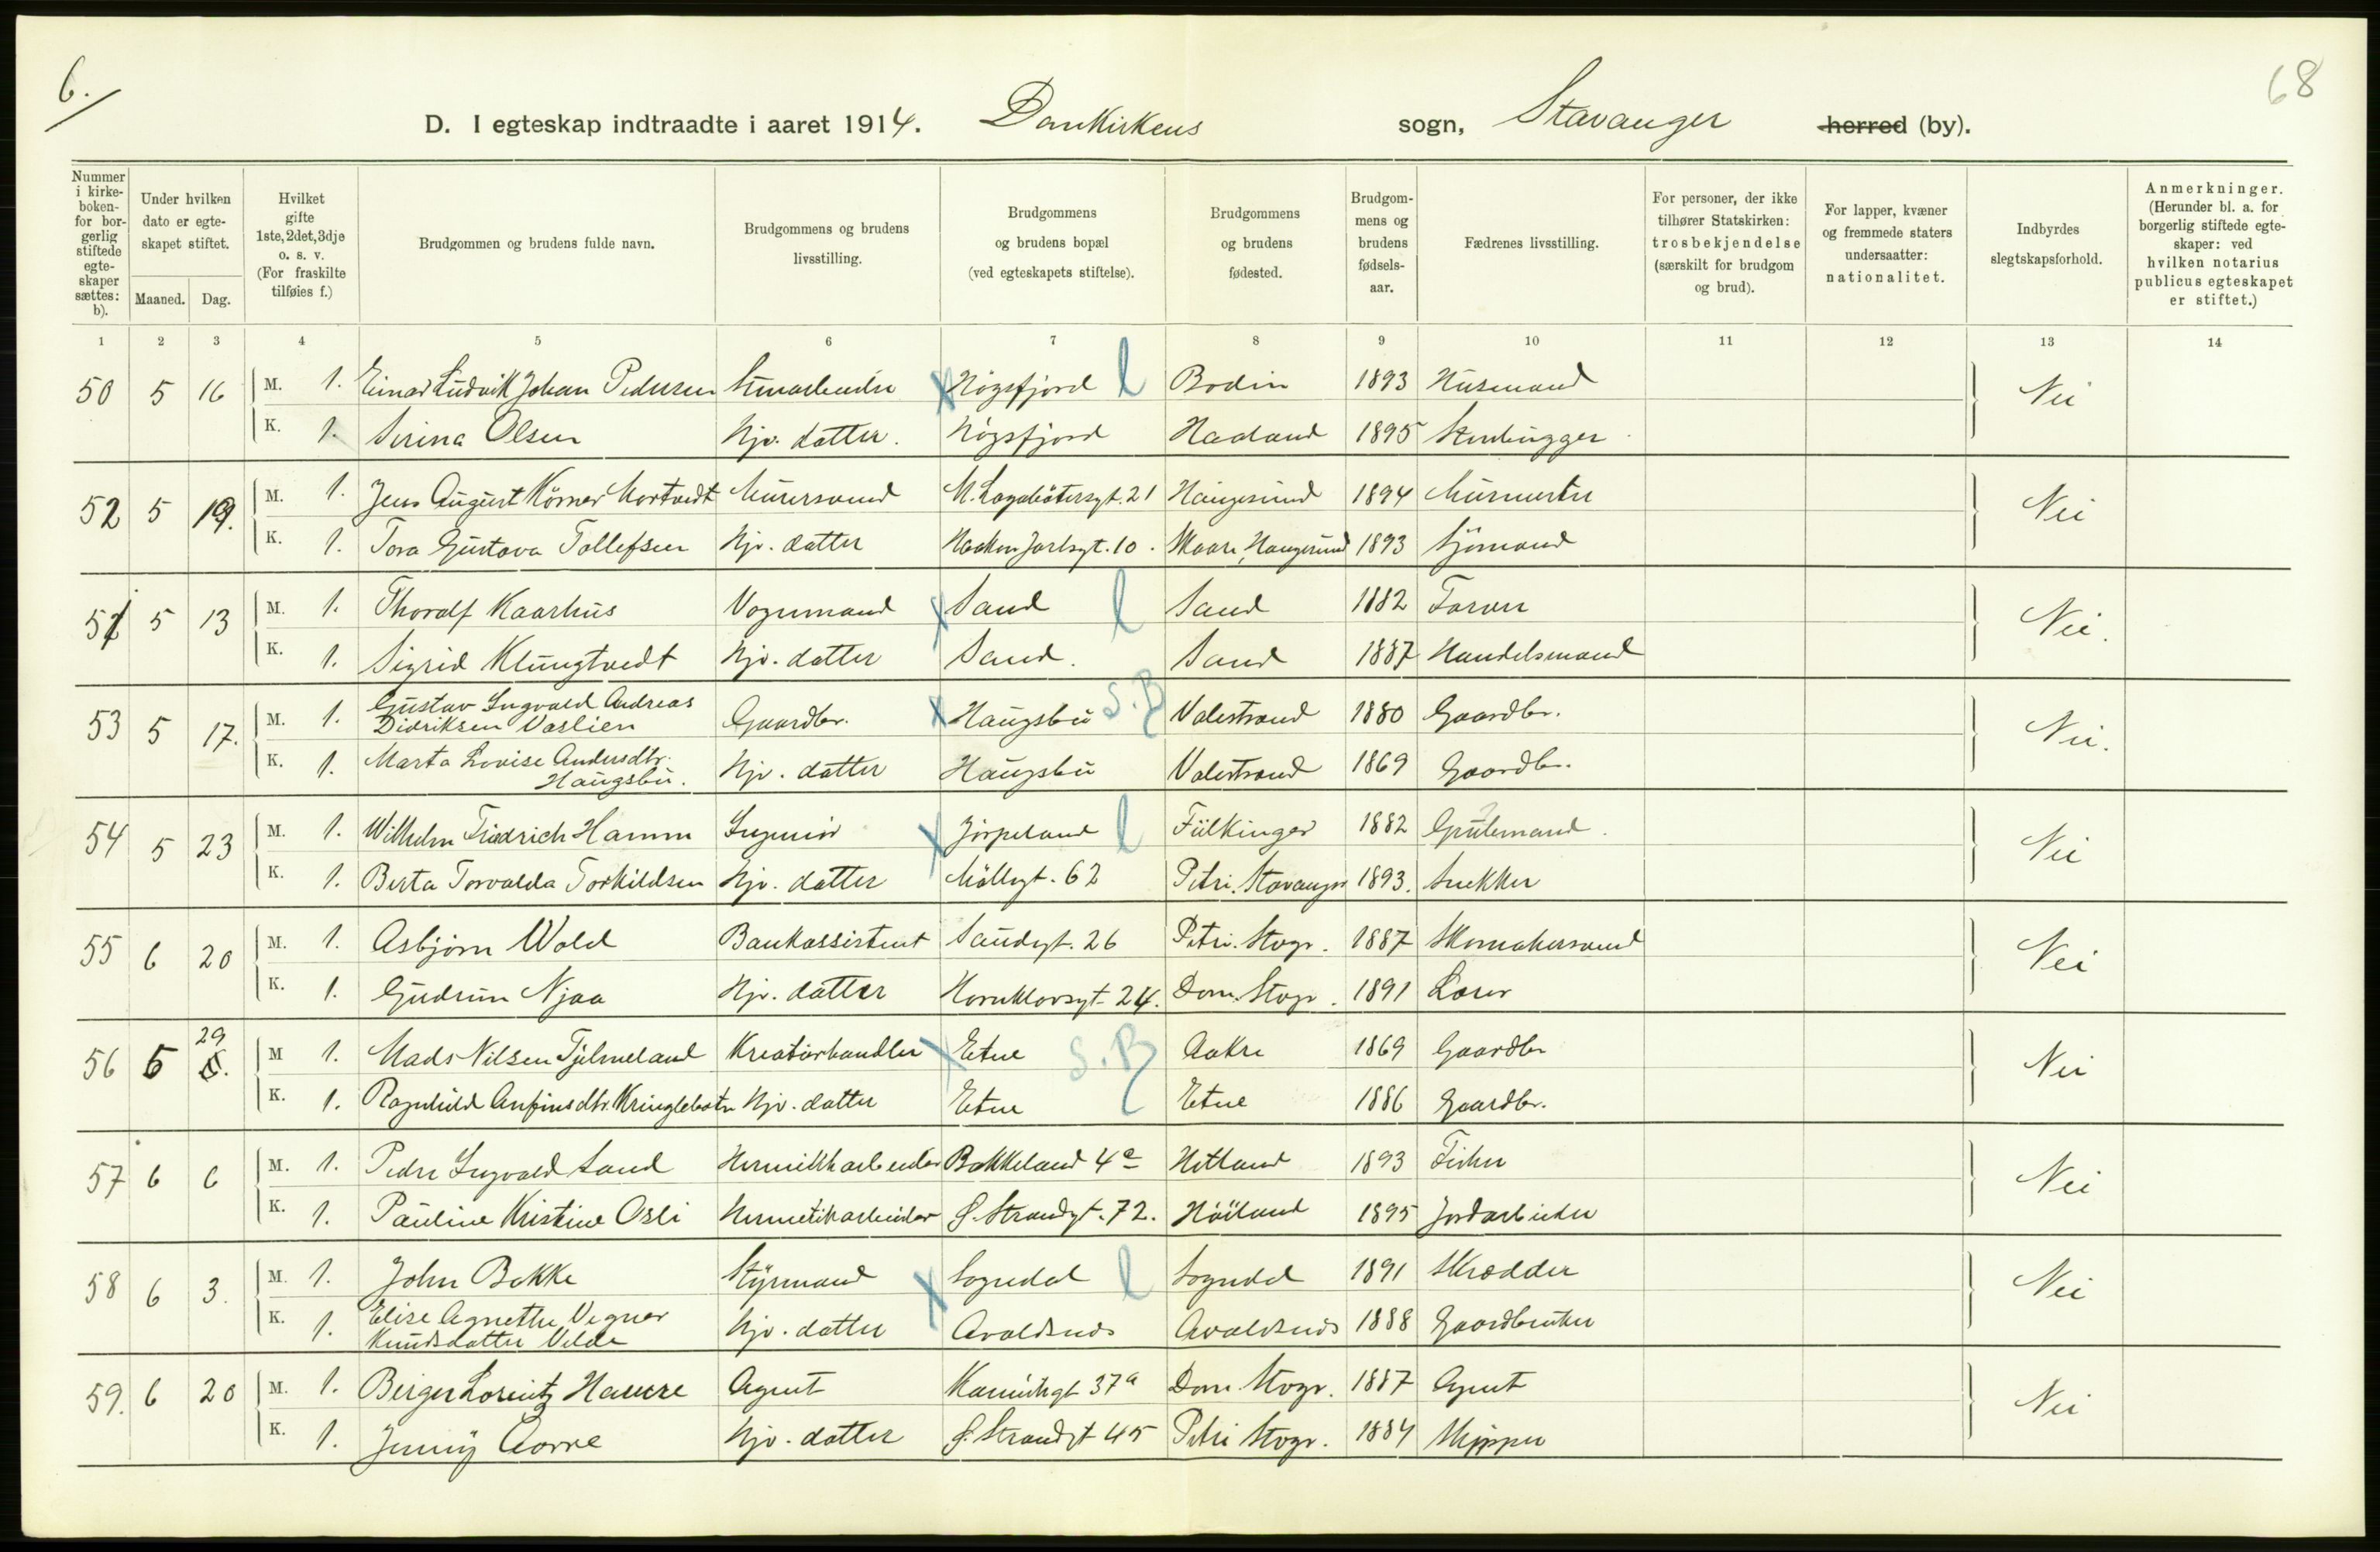 6.
68
D. I egteskap indtraadte i aaret 1914. Domkirkens sogn, Stavanger herred (by).
Nummer i kirke-boken- for bor-gerlig stiftede egte-skaper sættes: b).
Under hvilken dato er egte-skapet stiftet.
Maaned. Dag.
Hvilket gifte 1ste, 2det, 3dje o. s. v. (For fraskilte tilføies f.)
Brudgommen og brudens fulde navn.
Brudgommens og brudens livsstilling.
Brudgommens og brudens bopæl (ved egteskapets stiftelse).
Brudgommens og brudens fødested.
Brudgom-mens og brudens fødsels-aar.
Fædrenes livsstilling.
For personer, der ikke tilhører Statskirken: trosbekjendelse (særskilt for brudgom og brud).
For lapper, kvæner og fremmede staters undersaatter: nationalitet.
Indbyrdes slegtskapsforhold.
Anmerkninger. (Herunder bl. a. for borgerlig stiftede egte-skaper: ved hvilken notarius publicus egteskapet er stiftet.)
1 2 3 4 5 6 7 8 9 10 11 12 13 14
50 5 16 M. 1. Einar Ludvik Johan Pedersen Stenarbeider x Høgsfjord l Bodin 1893 Husmand Nei
K. 1. Serina Olsen Hjv. datter. Høgsfjord Haaland 1895 Stenhugger
52 5 19. M. 1. Jens August Körner Mortvedt Murersvend M. Lagabøtersgt. 21 Haugesund 1894 Murmester Nei
K. 1. Tora Gustava Tollefsen Hjv. datter Haakon Jarlsgt. 10. Skaare, Haugesund 1893 Sjömand
51 5 13 M. 1. Thoralf Kaarhus Vognmand x Sand l Sand 1882 Farver Nei.
K. 1. Sigrid Klungtvedt Hjv. datter Sand. Sand 1887 Handelsmand
53 5 17. M. 1. Gustav Ingvald Andreas Didriksen Vaslien Gaardbr. x Haugsbu S.B Valestrand 1880 Gaardbr. Nei.
K. 1. Marta Lovise Andersdtr. Haugsbu. Hjv. datter Haugsbu Valestrand 1869 Gaardbr.
54 5 23 M. 1. Wilhelm Friedrich Hamm Ingeniør x Jørpeland l 1882 Nei
K. 1. Berta Torvalda Torkildsen Hjv. datter Möllegt. 62 Petri. Stavanger 1893. Snekker
55 6 20 M. 1. Asbjørn Wold Bankassistent Sandsgt. 26 Petri. Stvgr. 1887 Skomakersvend Nei
K. 1. Gudrun Njaa Hjv. datter Hornklovsgt. 24. Dom. Stvgr. 1891 Lærer
56 5 29 M 1. Mads Nilsen Tjelmeland Kreaturhandler x Etne S.B Aakre 1869 Gaardbr Nei
K. 1. Ragnhild Anfinsdtr. Kringlebotn Hjv. datter Etne Etne 1886 Gaardbr.
57 6 6 M. 1. Peder Ingvald Sand Hermetikarbeider Bakkeland 4a Hetland 1893 Fisker Nei
K. 1. Pauline Kristine Osli Hermetikarbeider Ø. Strandgt. 72. Höiland 1895 Jordarbeider
58 6 3. M. 1. John Bakke Styrmand x Sogndal l Sogndal 1891 Skrædder Nei
K. 1. Elise Agnethe Vegner Knudsdatter Velde Hjv. datter Avaldsnes Avaldsnes 1888 Gaardbruker
59. 6 20 M. 1. Berger Lorentz Hauere Agent 37a Dom Stvgr. 1887 Agent Nei
K. 1. Jenny Aarre Hjv. datter Ø. Strandgt 45 Petri Stvgr. 1884 Skipper